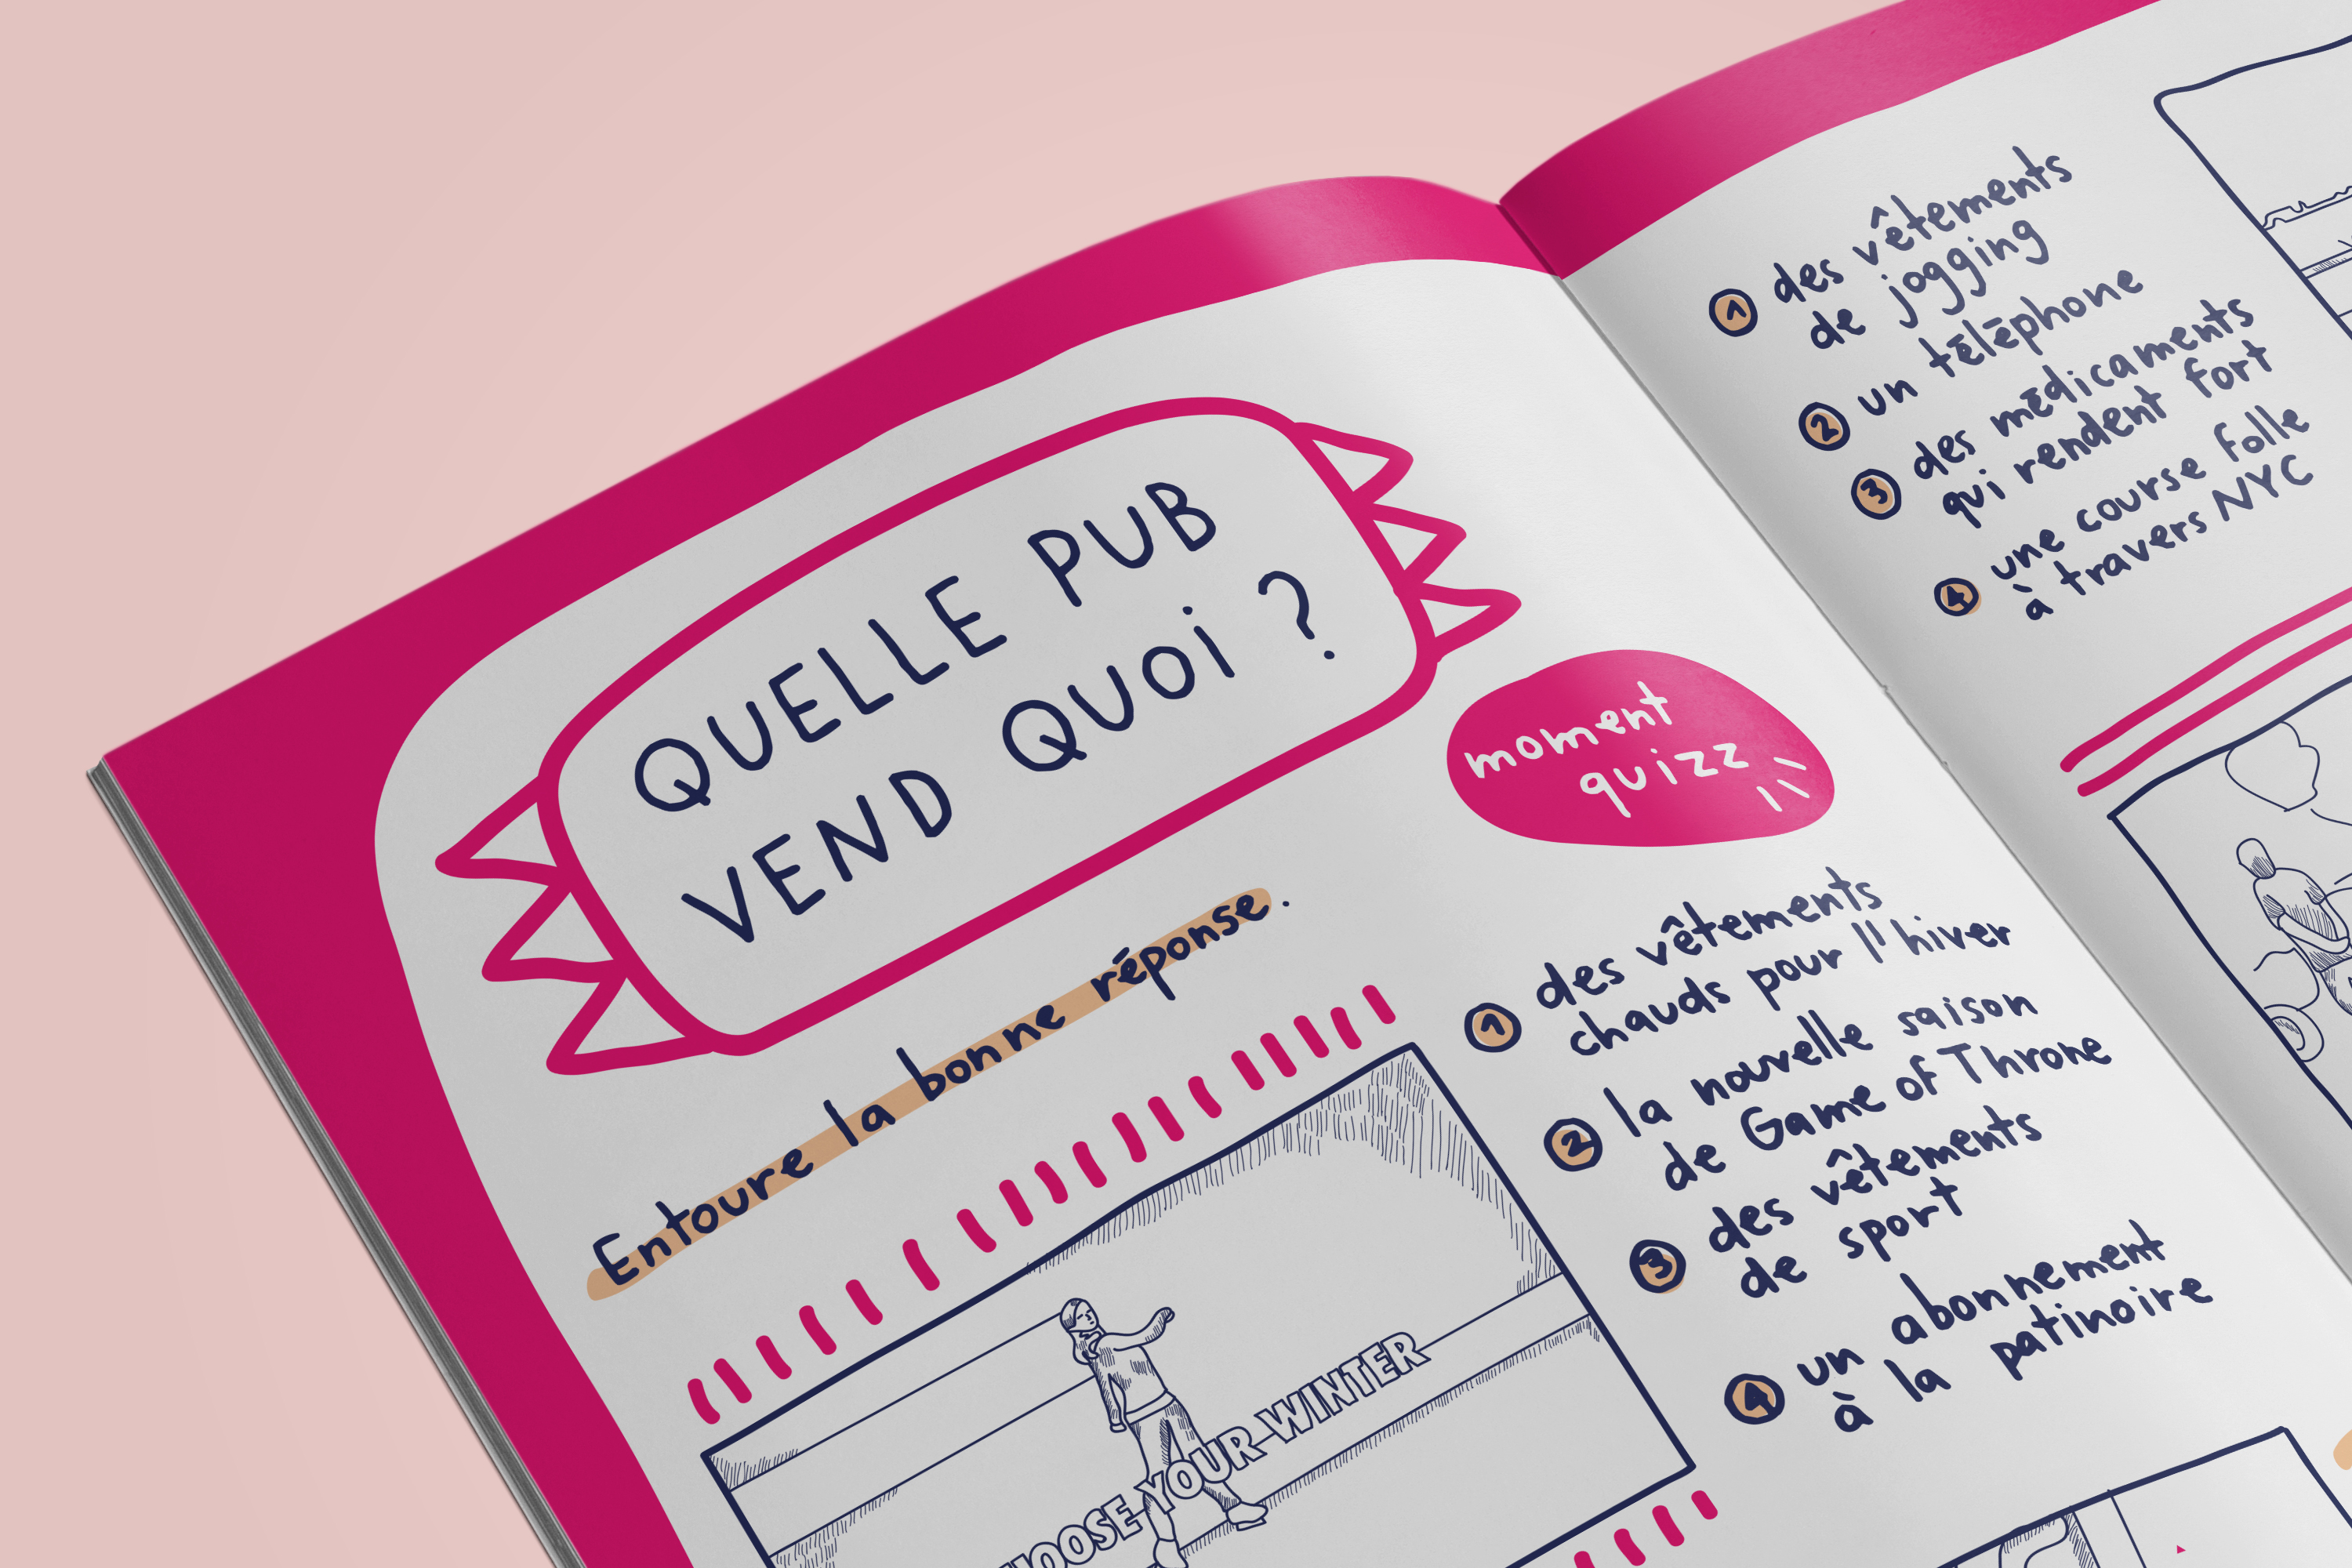 QUELLE PUB
VEND QUOI ?
moment
quizz
Entoure la bonne réponse.
1 des vêtements
chauds pour l'hiver
2 la nouvelle saison
de Game of Throne
3 des vêtements
de sport
4 un abonnement
à la patinoire
YOUR WINTER
1 des vêtements
de jogging
2 un téléphone
3 des médicaments
qui rendent fort
4 une course folle
à travers NYC